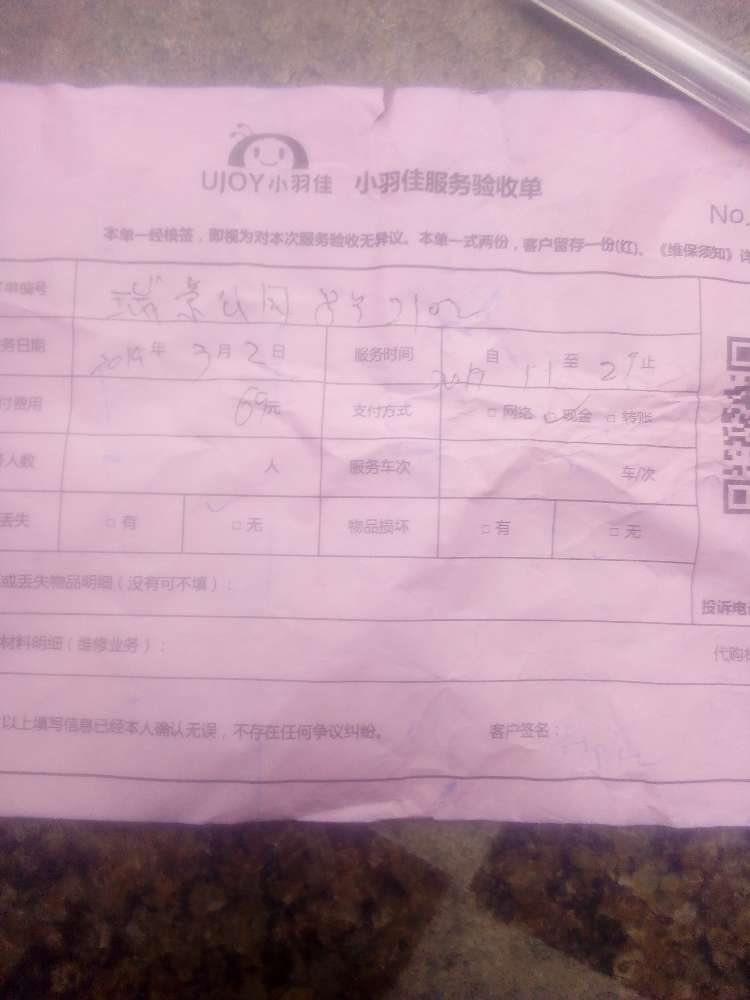 UJOY小羽佳 小羽佳服务验收单
No.
本单一经核签，即视为对本次服务验收无异议。本单一式两份，客户留存一份(红)。《维保须知》详
单编号 瑞景公园
务日期 年 3月2日 服务时间 自 11 至 止
付费用 69元 支付方式 □网络 □现金 □转账
人数 人 服务车次 车/次
丢失 □有 □无 物品损坏 □有 □无
或丢失物品明细（没有可不填）：
投诉电
材料明细（维修业务）：
代购
以上填写信息已经本人确认无误，不存在任何争议纠纷。 客户签名：